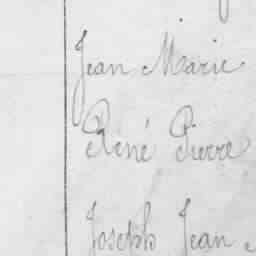 Jean Marie
René Pierre
Joseph Jean